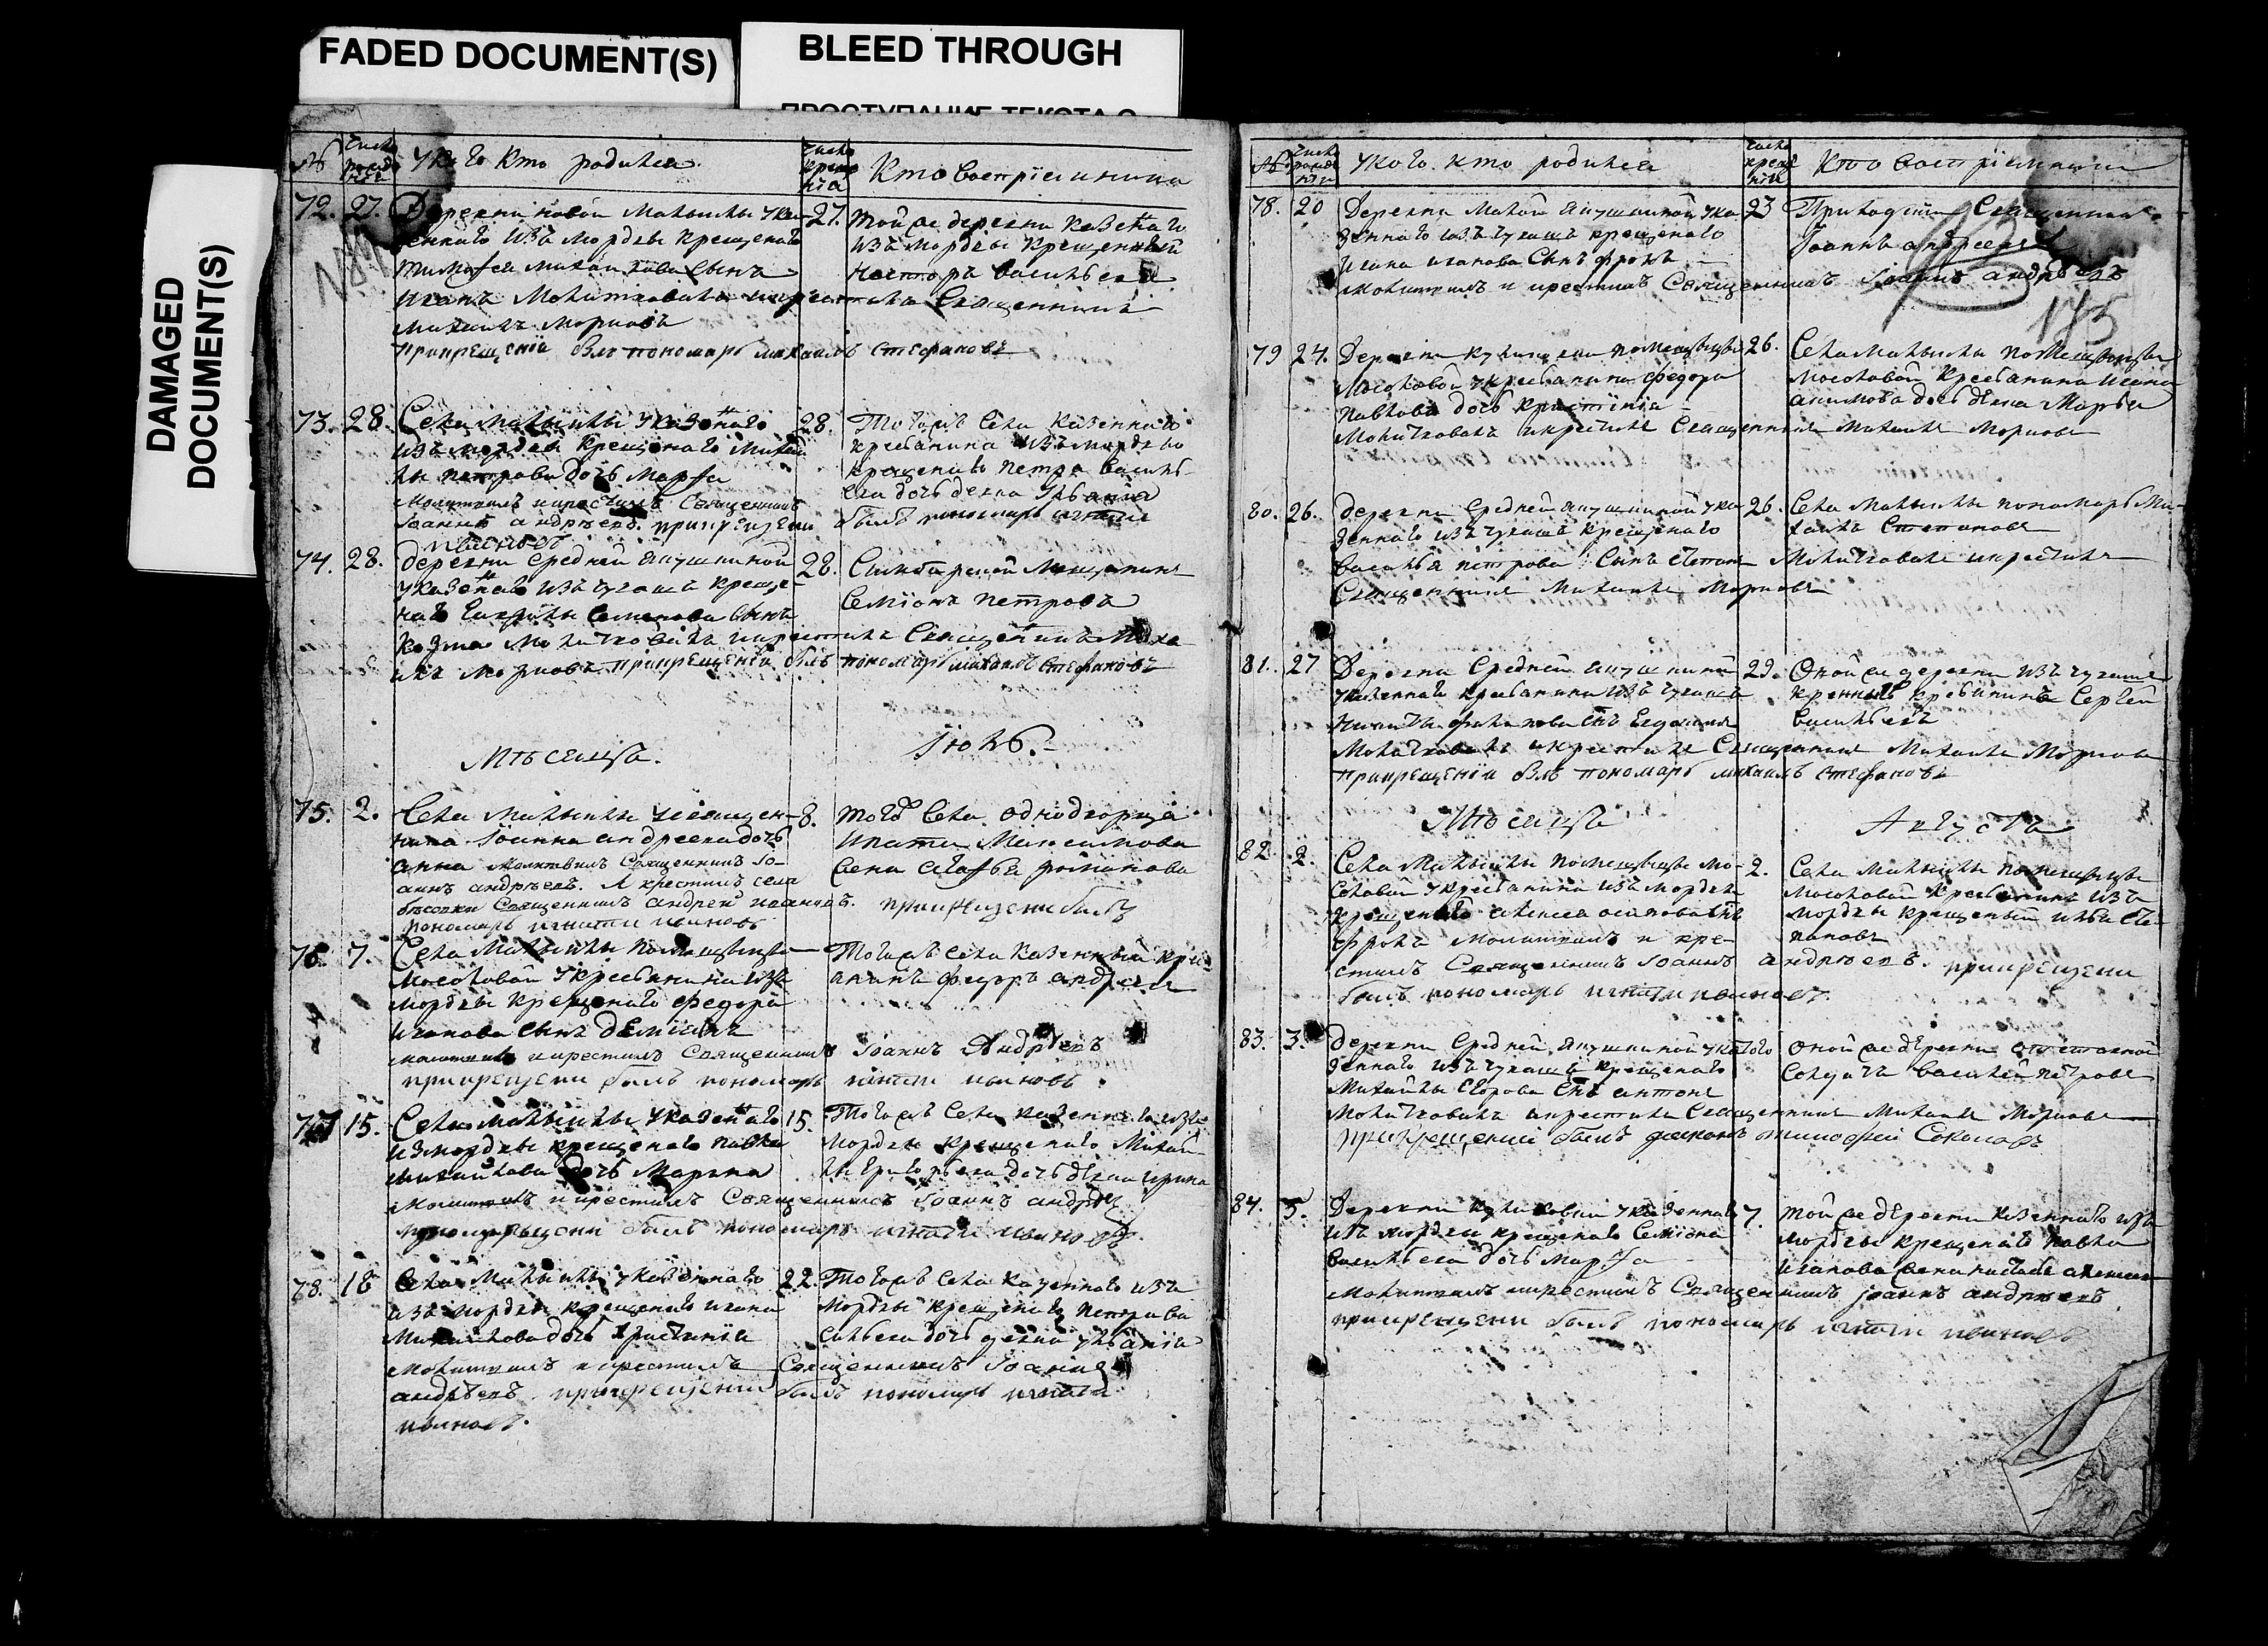 FADED DOCUMENT(S)
BLEED THROUGH
ПРОСТУПАНИЕ ТЕКСТА С
DAMAGED
DOCUMENT(S)
№ число рождения У кого кто родился число крещения Кто восприемники
72. 27. Деревни новой Малыклы у казенного
изъ мордвы крещенаго
Тимофея Михайлова сынъ
Иванъ Молитвовалъ и крестилъ Священникъ
Михаилъ
При крещенiи былъ пономарь михаилъ стефановъ
27. той же деревни казенаго
изъ мордвы крещенный
Несторъ васильевъ
73. 28. Села Малыклы у казенаго
изъ мордвы крещенаго Михай
лы петрова дочь Марфа
Молитвилъ и крестилъ Священникъ
Iоаннъ андрѣевъ. при крещении былъ пономарь игнати
ивановъ
28. Тогожъ Села казеннаго
кресьянина изъ мордвы
крещенаго петра василь
ева дочь девка Ульянiя
74. 28. деревни средней якушкиной
у казенаго изъ чувашъ креще-
наго семенова сынъ
Козма Молитвовалъ и крестилъ Священникъ Миха
илъ при крещенiи былъ пономарь михаилъ стефановъ
28. Симбирской Мещанинъ
Семiонъ петровъ
Мѣсяца. Iюль.
75. 2. Села Малыклы у священ-
ника Iоанна андреева дочь
анна Молитвилъ Священникъ Iо-
аннъ андрѣевъ. А крестилъ села
бѣсовки Священникъ андрей ивановъ. при крещении былъ
пономарь игнати ивановъ
8. того Села однодворца
Ипата Максимова
жена Агафья романова
76. 7. Села Малыклы помещицы
Мосоловой у кресьянина изъ
мордвы крещенаго федора
иванова сынъ Демианъ
молитвилъ и крестилъ Священникъ Iоаннъ Андрѣевъ
при крещени былъ пономарь игнати ивановъ.
Тогожъ села казенный крес
янинъ федоръ андреевъ
77 15. Села Малыклы у казенаго
из мордвы крещенаго павла
михайлова дочь Марина
Молитвилъ и крестилъ Священникъ Iоаннъ андрѣ
при крещени былъ пономарь игнати ивановъ.
15. Тогожъ Села казеннаго изъ
мордвы крещенаго Михай
лы Григорьева дочь девка ирина
78. 18 Села Малыклы у казеннаго
изъ мордвы крещенаго ивана
Михайлова дочь Христинiя
Молитвилъ и крестилъ Священникъ Iоаннъ
андрѣевъ. при крещении былъ пономарь игнати
ивановъ.
22. Тогожъ Села казеннаго изъ
мордвы крещенаго петра ва
сильева дочь девка ульянiя
№ число рождения У кого кто родился число крещения Кто восприемники
78. 20 Деревни Малой якушкиной у ка
зеннаго изъ чувашъ крещенаго
Ивана иванова Сынъ фролъ
Молитвилъ и крестилъ Священникъ Iоаннъ андрѣевъ
23 Приходский Священникъ
Iоаннъ андреевъ
175
79 24. Деревни помещицы
Мосоловой у кресьянина федора
Павлова дочь Христинiя
Молитвовалъ и крестилъ Священникъ Михаилъ
26. Села Малыклы помещицы
Мосоловой кресьянина Ивана
акимова дочь девка Марья
80. 26. деревни Средней якушкиной у ка
зеннаго изъ чувашъ крещенаго
василья петрова Сынъ Степанъ Молитвовалъ и крестилъ
Священникъ Михаилъ
26. Села Малыклы пономарь Ми-
хаилъ Степановъ
81. 27 Деревни Средней якушкиной
у казеннаго кресьянина изъ чувашъ
Никиты Снъ Евдокимъ
Молитвовалъ и крестилъ Священникъ Михаилъ
При крещенiи былъ пономарь михаилъ стефановъ
29. Оной же деревни изъ чувашъ
кресьянинъ Сергей
васильевъ
Мѣсяца Августъ
82. 2. Села Малыклы помещицы Мо-
соловой у кресьянина изъ мордвы
крещенаго алексея осипова снъ
Фролъ Молитвилъ и кре-
стилъ Священникъ Iоаннъ андрѣевъ. при крещени
былъ пономарь игнати ивановъ.
2. Села Малыклы помещицы
Мосоловой кресьянинъ изъ
мордвы крещеный илья Сте
пановъ
83. 3. Деревни Средней якушкиной у ка
зеннаго изъ чувашъ крещенаго
Михайлы Егорова Снъ антонъ
Молитвовалъ и крестилъ Священникъ Михаилъ
при крещении былъ диаконъ тимофей Соколовъ
того оной же деревни отставной
Солдатъ василей петровъ
84. 5. Деревни Куликовки у казеннаго
изъ мордвы крещенаго Семiона
Васильева дочь Марфа
Молитвилъ и крестилъ Священникъ Iоаннъ андрѣевъ
при крещени былъ пономарь игнати ивановъ
7. той же деревни казеннаго изъ
мордвы крещенаго павла
Иванова жена